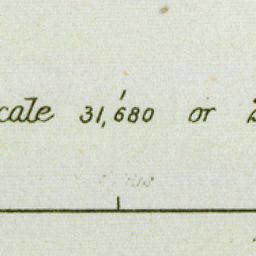 cale 1/31,680 or 2